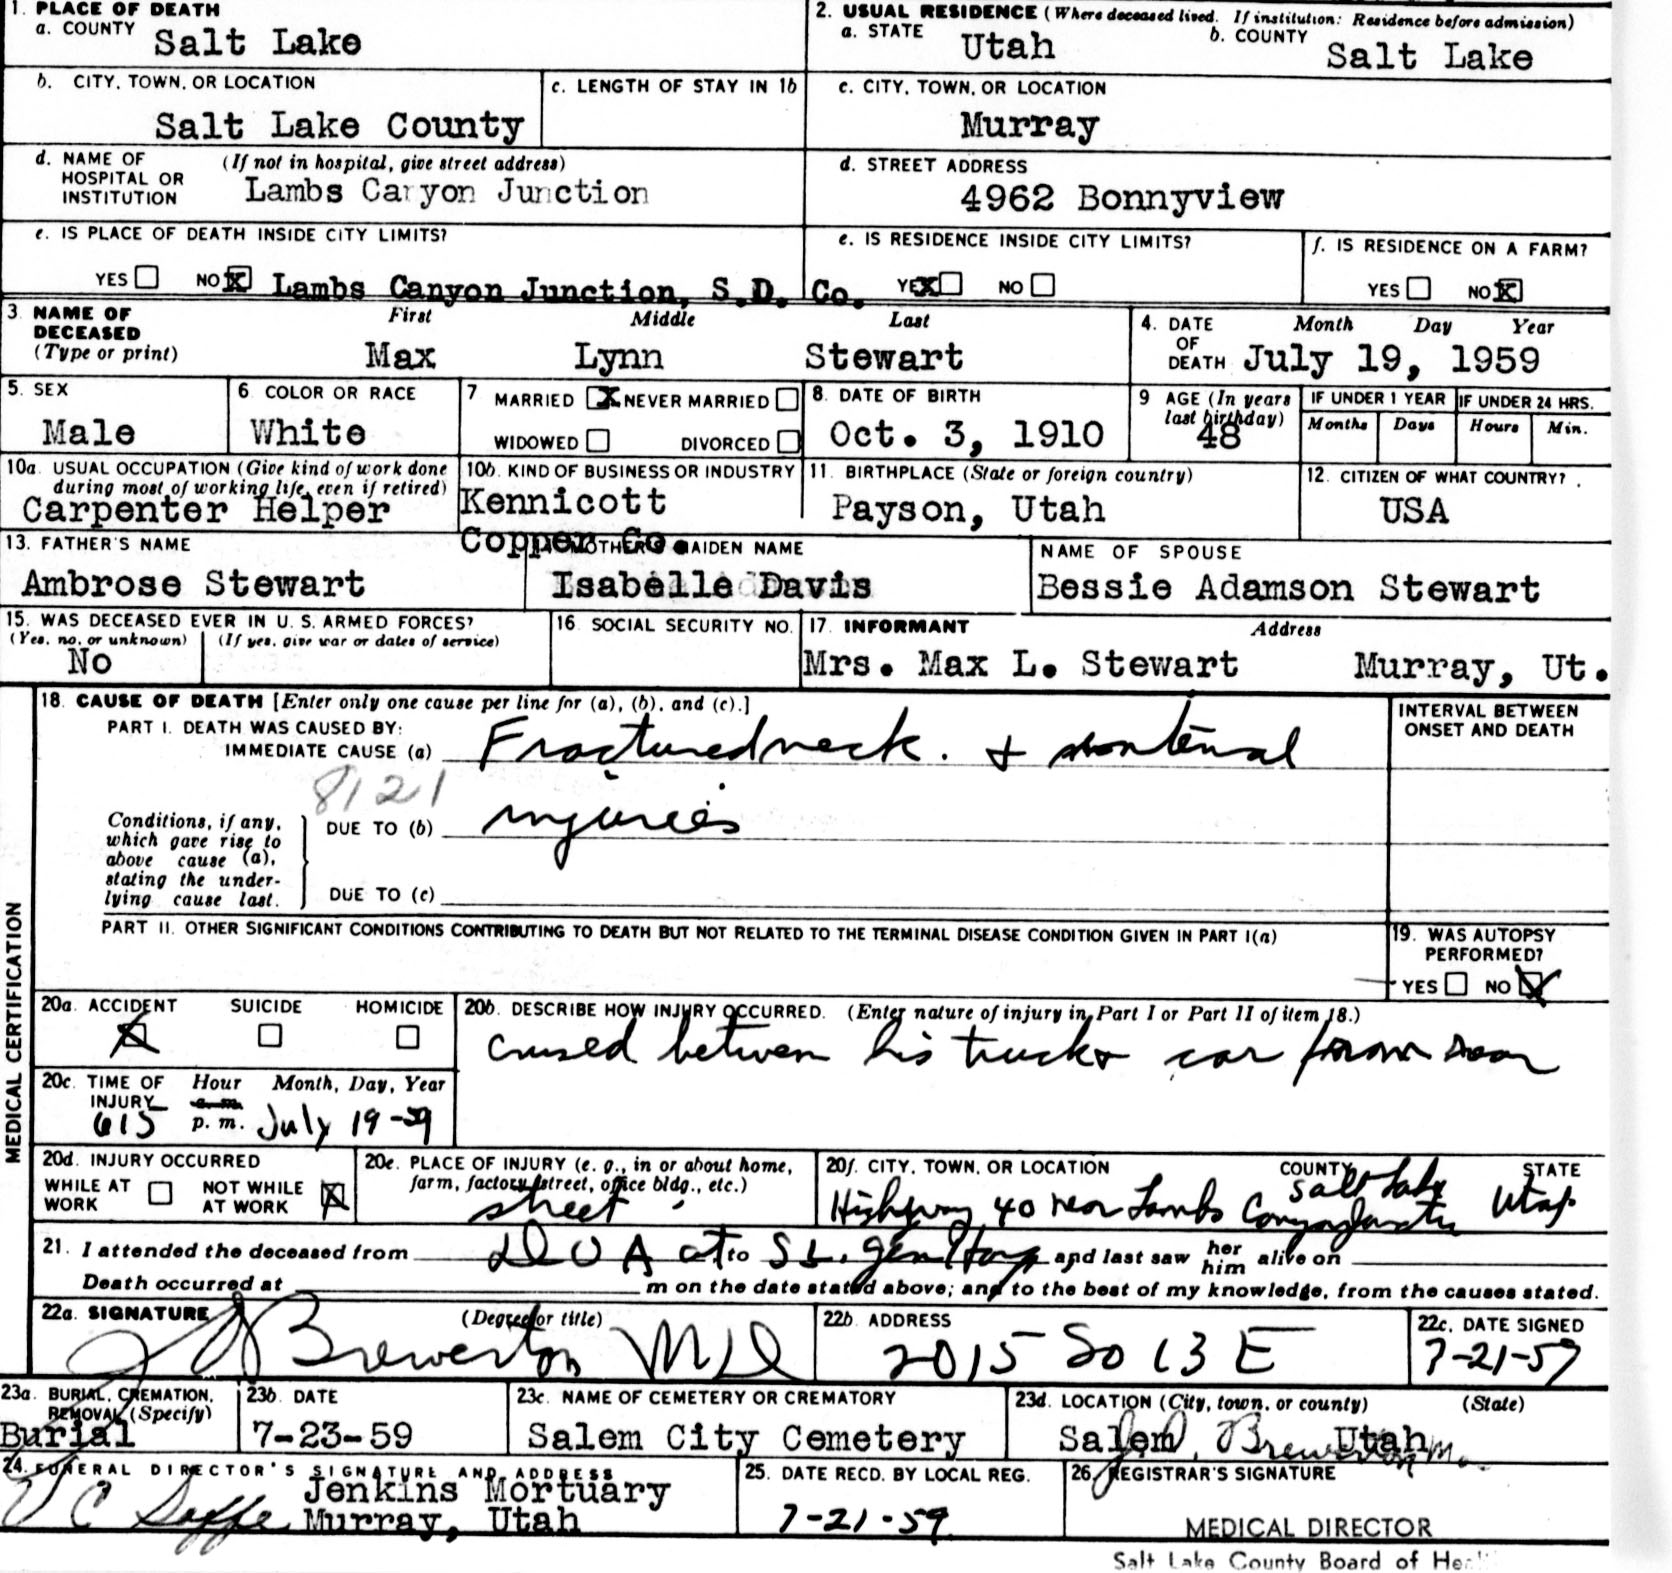 1. PLACE OF DEATH
a. COUNTY Salt Lake
2. USUAL RESIDENCE (Where deceased lived. If institution: Residence before admission)
a. STATE Utah b. COUNTY Salt Lake
b. CITY, TOWN, OR LOCATION
Salt Lake County
c. LENGTH OF STAY IN 1b
c. CITY, TOWN, OR LOCATION
Murray
d. NAME OF HOSPITAL OR INSTITUTION (If not in hospital, give street address)
Lambs Canyon Junction
d. STREET ADDRESS
4962 Bonnyview
e. IS PLACE OF DEATH INSIDE CITY LIMITS?
YES NO X Lambs Canyon Junction, S.D. Co.
e. IS RESIDENCE INSIDE CITY LIMITS?
YES X NO
f. IS RESIDENCE ON A FARM?
YES NO X
3. NAME OF DECEASED (Type or print)
First Middle Last
Max Lynn Stewart
4. DATE OF DEATH Month Day Year
July 19, 1959
5. SEX
Male
6. COLOR OR RACE
White
7 MARRIED X NEVER MARRIED
WIDOWED DIVORCED
8. DATE OF BIRTH
Oct. 3, 1910
9 AGE (In years last birthday)
48
IF UNDER 1 YEAR IF UNDER 24 HRS.
Months Days Hours Min.
10a. USUAL OCCUPATION (Give kind of work done during most of working life, even if retired)
Carpenter Helper
10b. KIND OF BUSINESS OR INDUSTRY
Kennicott
Copper Co.
11. BIRTHPLACE (State or foreign country)
Payson, Utah
12. CITIZEN OF WHAT COUNTRY?
USA
13. FATHER'S NAME
Ambrose Stewart
MOTHER'S MAIDEN NAME
Isabelle Davis
NAME OF SPOUSE
Bessie Adamson Stewart
15. WAS DECEASED EVER IN U.S. ARMED FORCES?
(Yes, no, or unknown) (If yes, give war or dates of service)
No
16. SOCIAL SECURITY NO.
17. INFORMANT Address
Mrs. Max L. Stewart Murray, Ut.
MEDICAL CERTIFICATION
18. CAUSE OF DEATH [Enter only one cause per line for (a), (b), and (c).]
PART I. DEATH WAS CAUSED BY:
IMMEDIATE CAUSE (a) Fractured neck. +
INTERVAL BETWEEN ONSET AND DEATH
8121
Conditions, if any, which gave rise to above cause (a), stating the underlying cause last.
DUE TO (b) injuries
DUE TO (c)
PART II. OTHER SIGNIFICANT CONDITIONS CONTRIBUTING TO DEATH BUT NOT RELATED TO THE TERMINAL DISEASE CONDITION GIVEN IN PART I(a)
19. WAS AUTOPSY PERFORMED?
YES NO X
20a. ACCIDENT SUICIDE HOMICIDE
X
20b. DESCRIBE HOW INJURY OCCURRED. (Enter nature of injury in Part I or Part II of item 18.)
between his truck & car from rear
20c. TIME OF INJURY Hour Month, Day, Year
a.m.
615 p.m. July 19-59
20d. INJURY OCCURRED
WHILE AT WORK NOT WHILE AT WORK X
20e. PLACE OF INJURY (e. g., in or about home, farm, factory, street, office bldg., etc.)
street
20f. CITY, TOWN, OR LOCATION COUNTY STATE
Highway 40 near Lambs Canyon Junction Salt Lake Utah
21. I attended the deceased from D O A at S L. Gen Hosp and last saw her him alive on
Death occurred at m on the date stated above; and to the best of my knowledge, from the causes stated.
22a. SIGNATURE (Degree or title)
Brewerton MD
22b. ADDRESS
2015 So 13 E
22c. DATE SIGNED
7-21-59
23a. BURIAL, CREMATION, REMOVAL (Specify)
Burial
23b. DATE
7-23-59
23c. NAME OF CEMETERY OR CREMATORY
Salem City Cemetery
23d. LOCATION (City, town, or county) (State)
Salem Utah
24. FUNERAL DIRECTOR'S SIGNATURE AND ADDRESS
Jenkins Mortuary
Murray, Utah
25. DATE RECD. BY LOCAL REG.
7-21-59
26. REGISTRAR'S SIGNATURE
MEDICAL DIRECTOR
Salt Lake County Board of